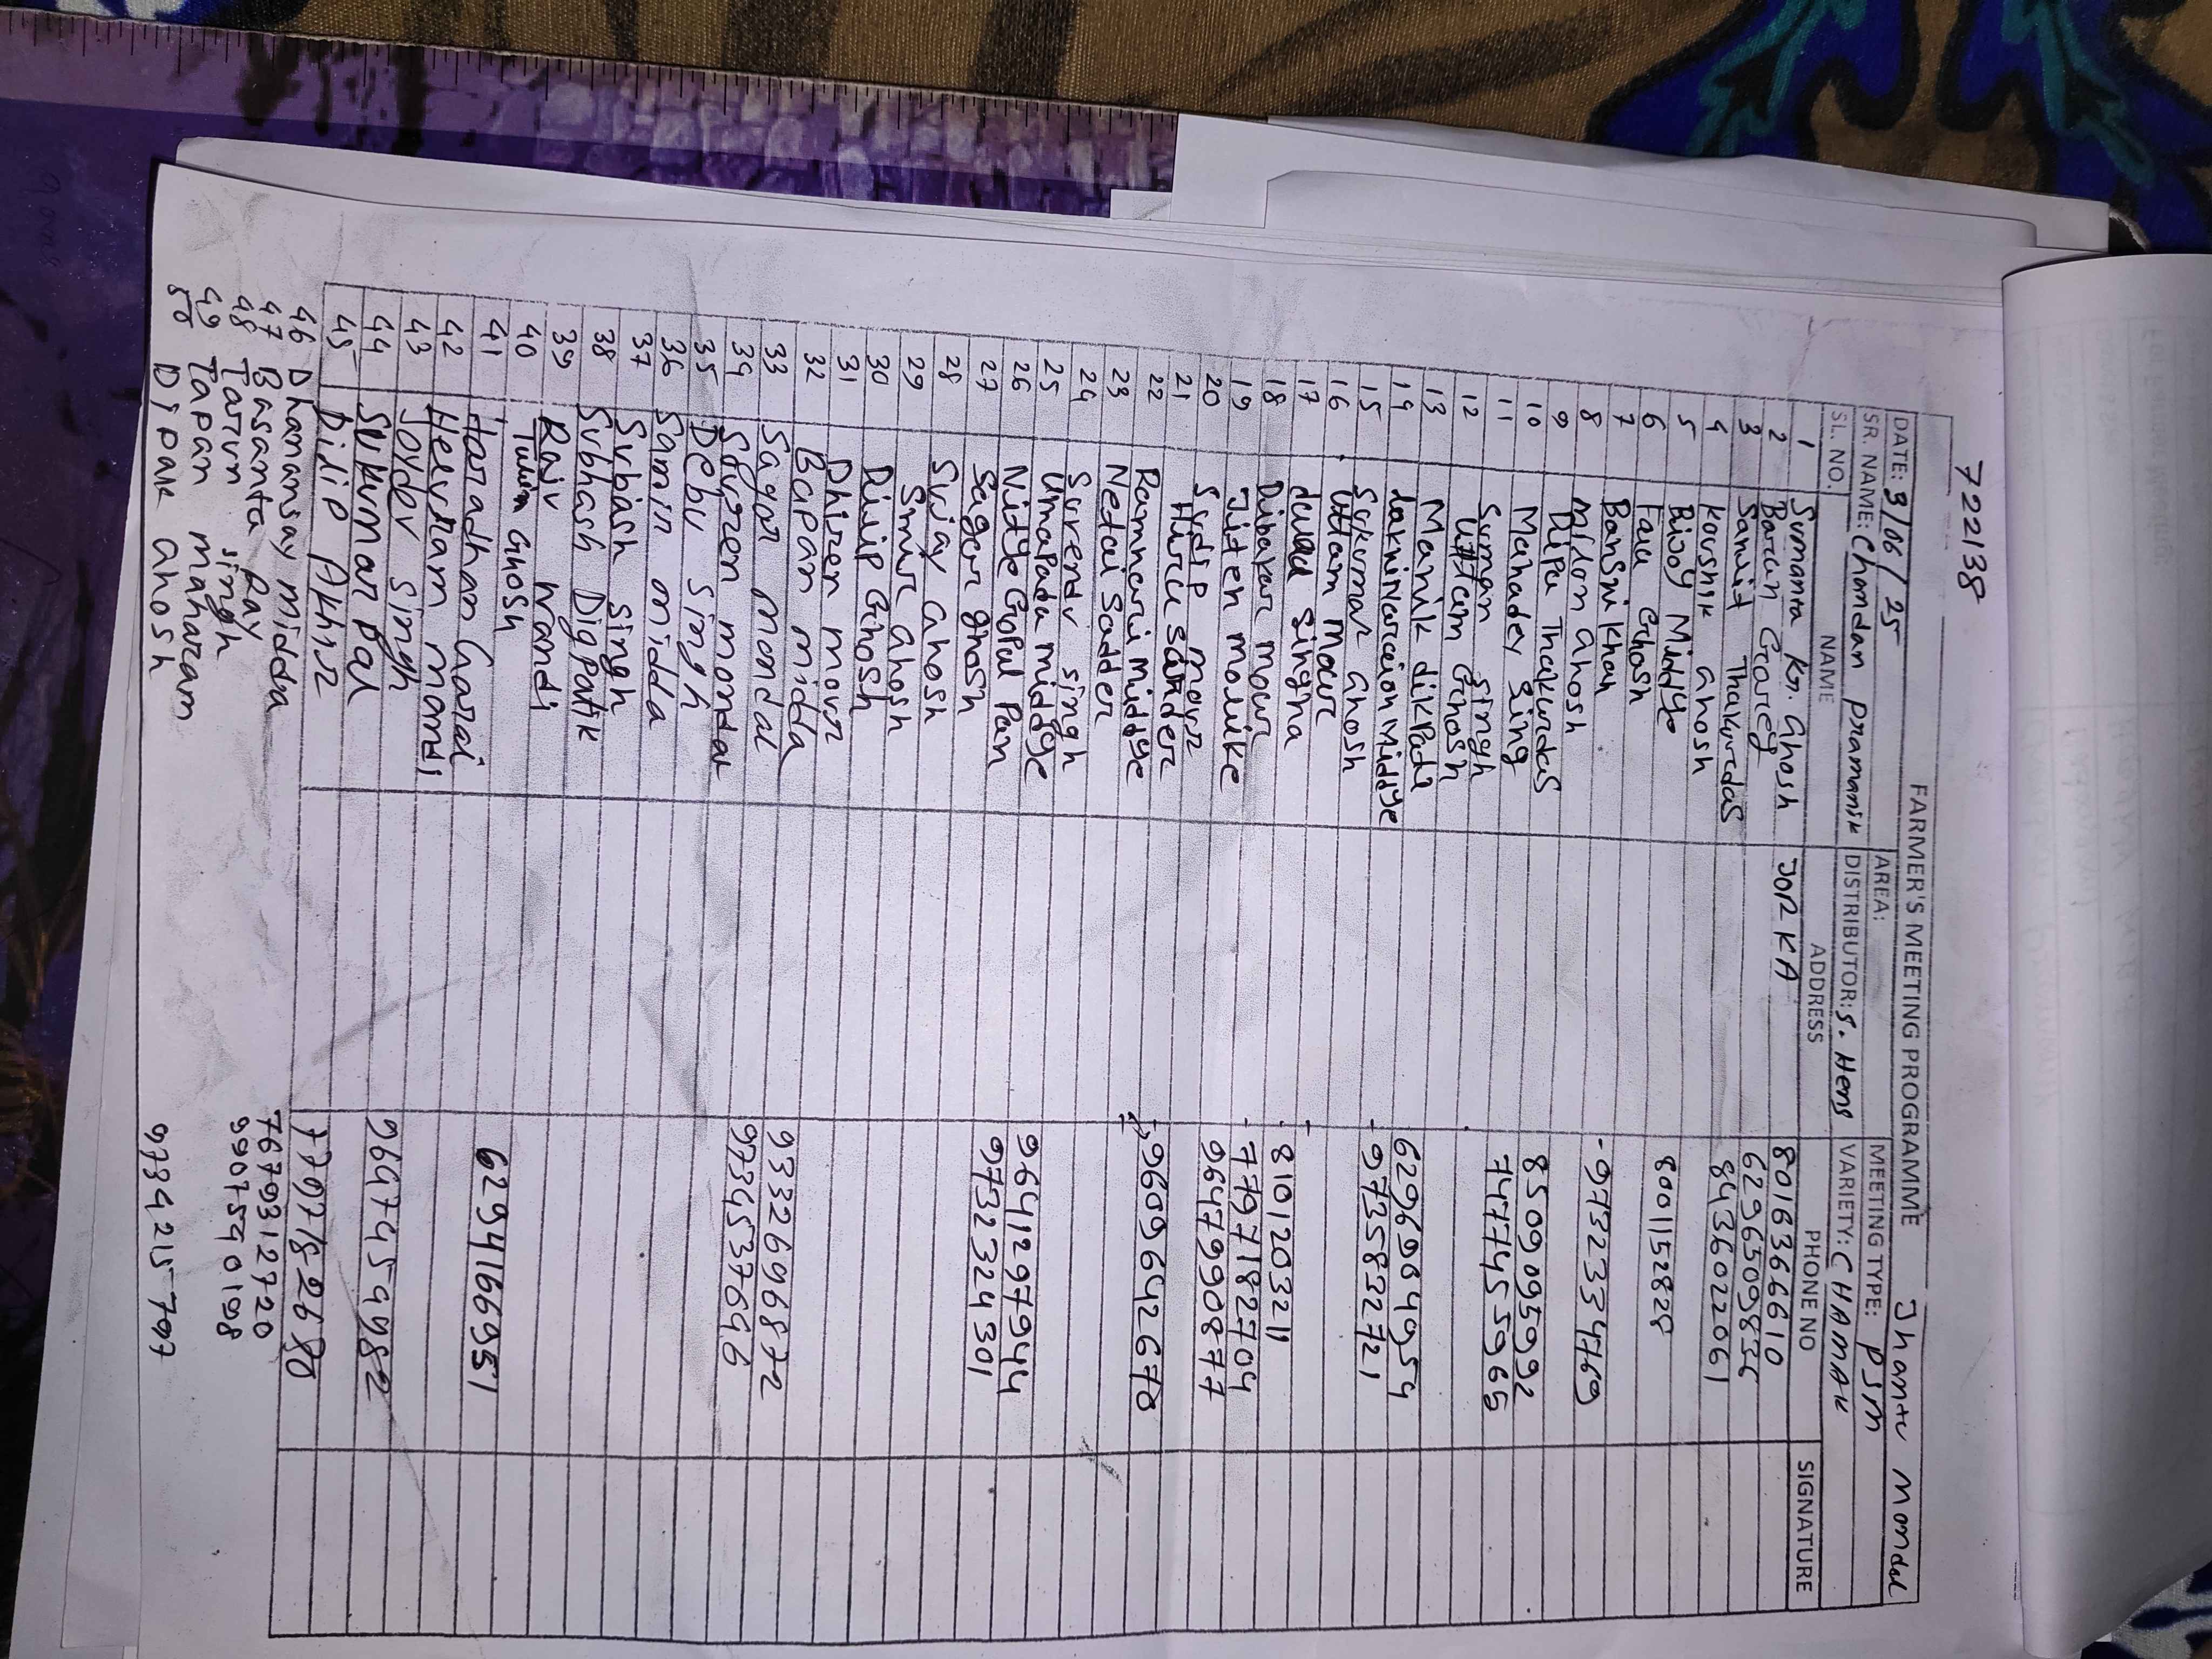 722138
FARMER'S MEETING PROGRAMME Jhantu Mondal
DATE: 3/06/25 AREA: MEETING TYPE: PSM
SR. NAME: Chandan pramanik DISTRIBUTOR: S. Hens VARIETY: CHAMAK
SL. NO. NAME ADDRESS PHONE NO SIGNATURE
1 Sumanta Kr. Ghosh JORKA 8016366610
2 Barun Grarey 6296509856
3 Samit Thakurdas 8436022061
4 Koushik Ghosh
5 Bijoy Middye 8001152828
6 Falu Ghosh
7 Bansri Khan - 9732334769
8 Midon Ghosh
9 Dipu Thakurdas 8509095992
10 Mahadev Sing 7477455965
11 Suman Singh
12 Uttam Ghosh
13 Manik dikpati 6296984954
14 Lakmi Narcion Middye - 9735832721
15 Sukumar Ghosh
16 Uttam Mour
17 Singha
18 Dibakar Mour 8101203211
19 Jiten Moulike - 7797182704
20 Sudip Mour 9647990877
21 Hiru
22 Ramncuri Middye 9609642678
23 Netai Sadder
24 Surendu Singh
25 Umapada Middye
26 Nitye Gopal Pan 9641297944
27 Sagar Ghosh 9732324301
28 Sujay Ghosh
29 Smir Ghosh
30 Dilip Ghosh
31 Dhiren Mour
32 Bapan midda
33 Sagar Mondal 9332696872
34 Soyren mondal 9734537646
35 Debu Singh
36 Samir midda
37 Subash Singh
38 Subhash Digpatik
39 Raju Nandi
40 Tuhin Ghosh
41 Haradhan Garai 6294166951
42 Helu Ram mandi
43 Joydev Singh
44 Sukumar Pal 9647454982
45 Dilip Akhir
46 Dhamansay Midda 7797182680
47 Basanta Ray 7679312720
48 Tarun Singh 9907590198
49 Tapan maharam
50 Dipak Ghosh